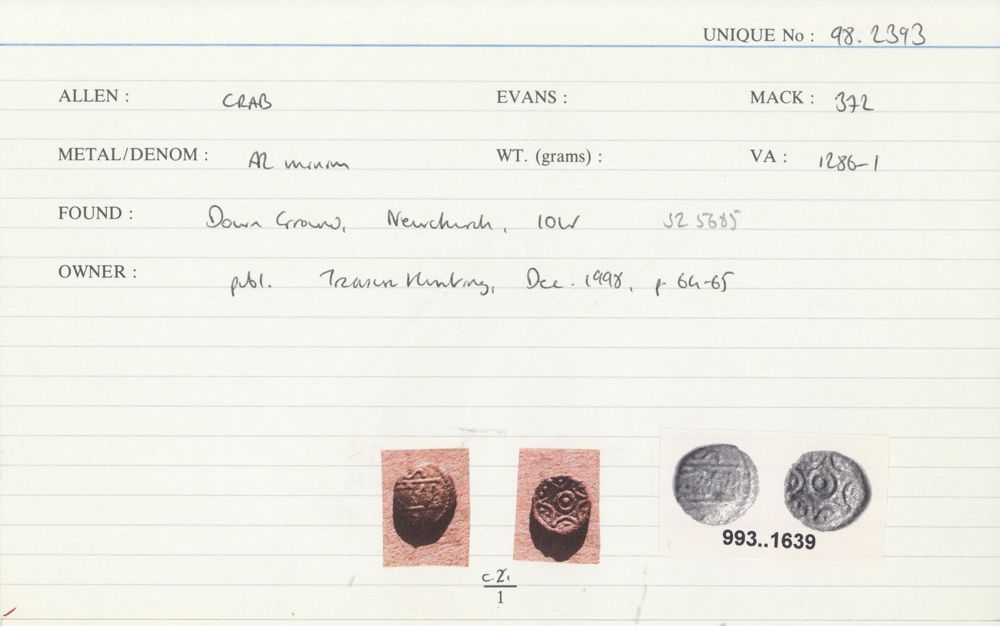 UNIQUE No : 98.2393
ALLEN : CRAB EVANS : MACK : 372
METAL/DENOM : AR minim WT. (grams) : VA : 1286-1
FOUND : Down Ground, Newchurch, IOW SZ 5685
OWNER : publ. Treasure Hunting, Dec. 1998, p. 64-65
993..1639
c.2.
1